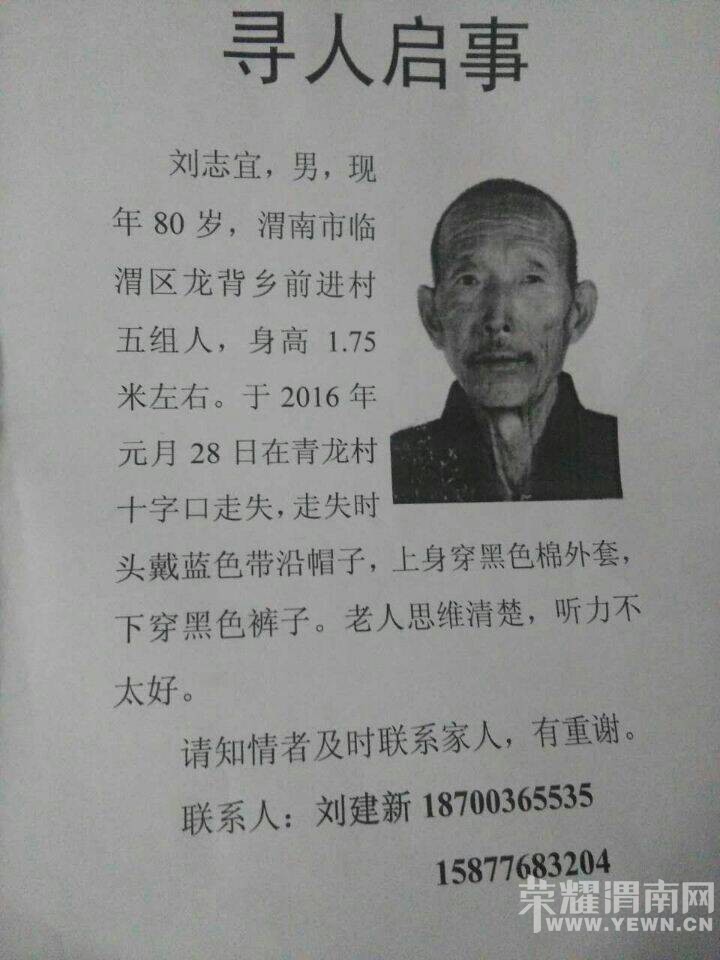 寻人启事
刘志宜，男，现
年 80 岁，渭南市临
渭区龙背乡前进村
五组人，身高 1.75
米左右。于 2016 年
元月 28 日在青龙村
十字口走失，走失时
头戴蓝色带沿帽子，上身穿黑色棉外套，
下穿黑色裤子。老人思维清楚，听力不
太好。
请知情者及时联系家人，有重谢。
联系人：刘建新 18700365535
15877683204
荣耀渭南网
WWW.YEWN.CN